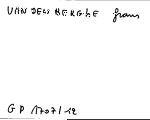 VANDENBERGHE Frans
GP 1707/12